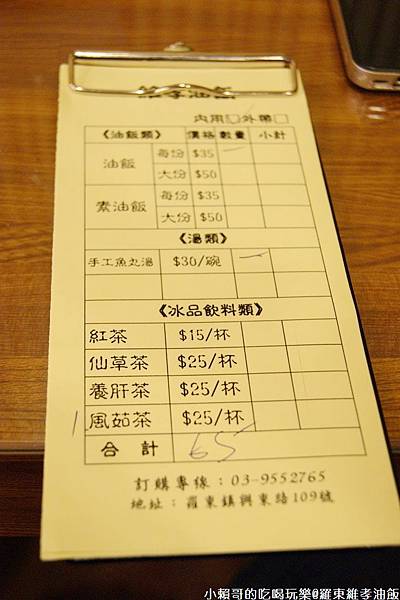 維孝油飯
內用□外帶□
《油飯類》 價格 數量 小計
油飯 每份 $35 一
大份 $50
素油飯 每份 $35
大份 $50
《湯類》
手工魚丸湯 $30/碗 一
《冰品飲料類》
紅茶 $15/杯
仙草茶 $25/杯
養肝茶 $25/杯
1 風茹茶 $25/杯
合計 65
訂購專線：03-9552765
地址：羅東鎮興東路109號
小賴哥的吃喝玩樂@羅東維孝油飯